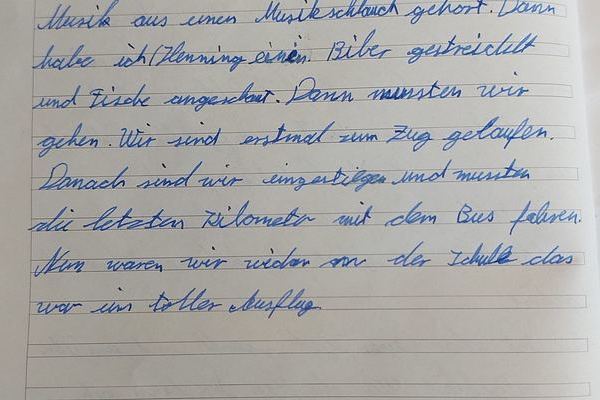 Musik aus einen Musikschlauch gehört. Dann
habe ich (Henning einen. Biber gestreichelt
und Fische angeschaut. Dann mussten wir
gehen. Wir sind erstmal zum Zug gelaufen.
Danach sind wir eingestiegen und mussten
die letzten Kilometer mit dem Bus fahren.
Nun waren wir wieder an der Schule das
war ein toller Ausflug